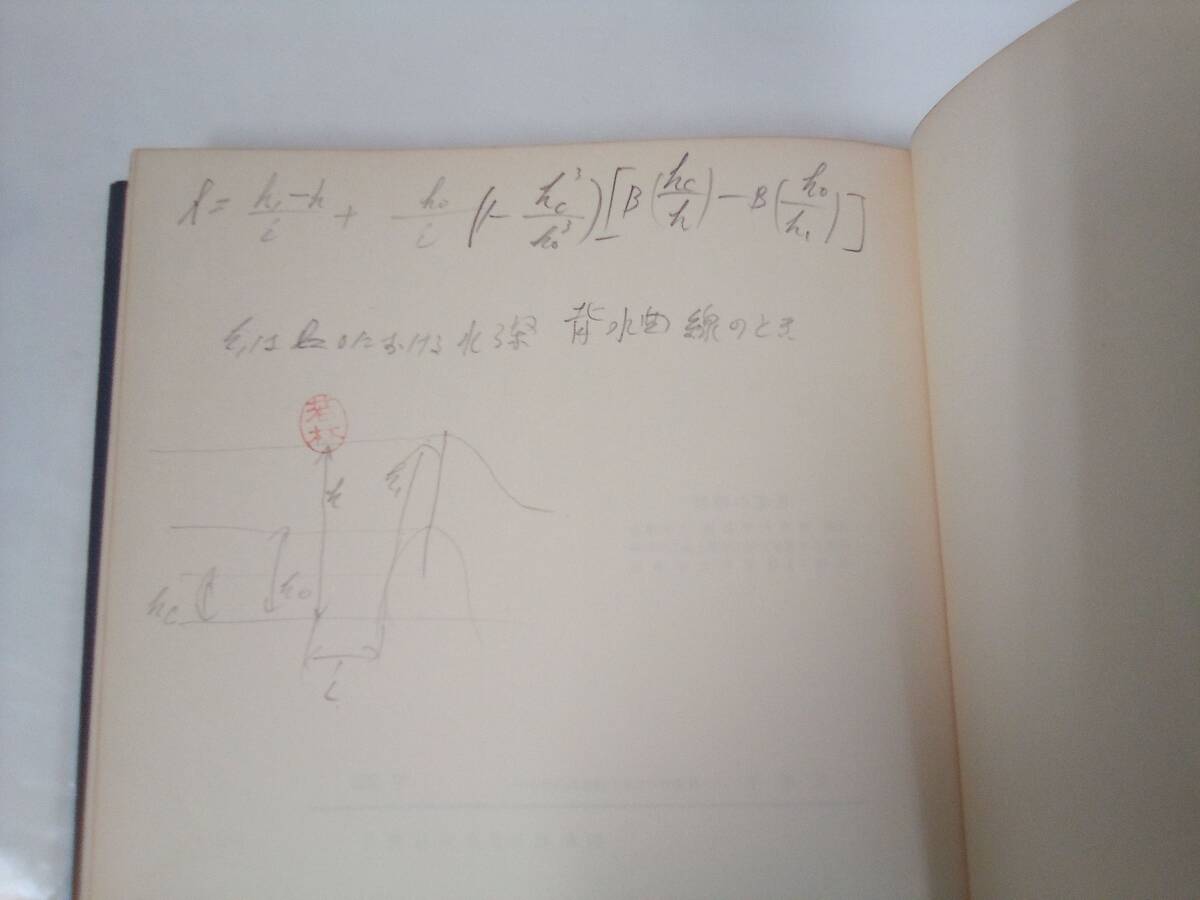 l = (h₁-h)/i + h₀/i (1- h_c³/h₀³) [B(h_c/h) - B(h₀/h₁)]
h₁は l=0における水深 背水曲線のとき
h
h₁
h₀
h_c
l